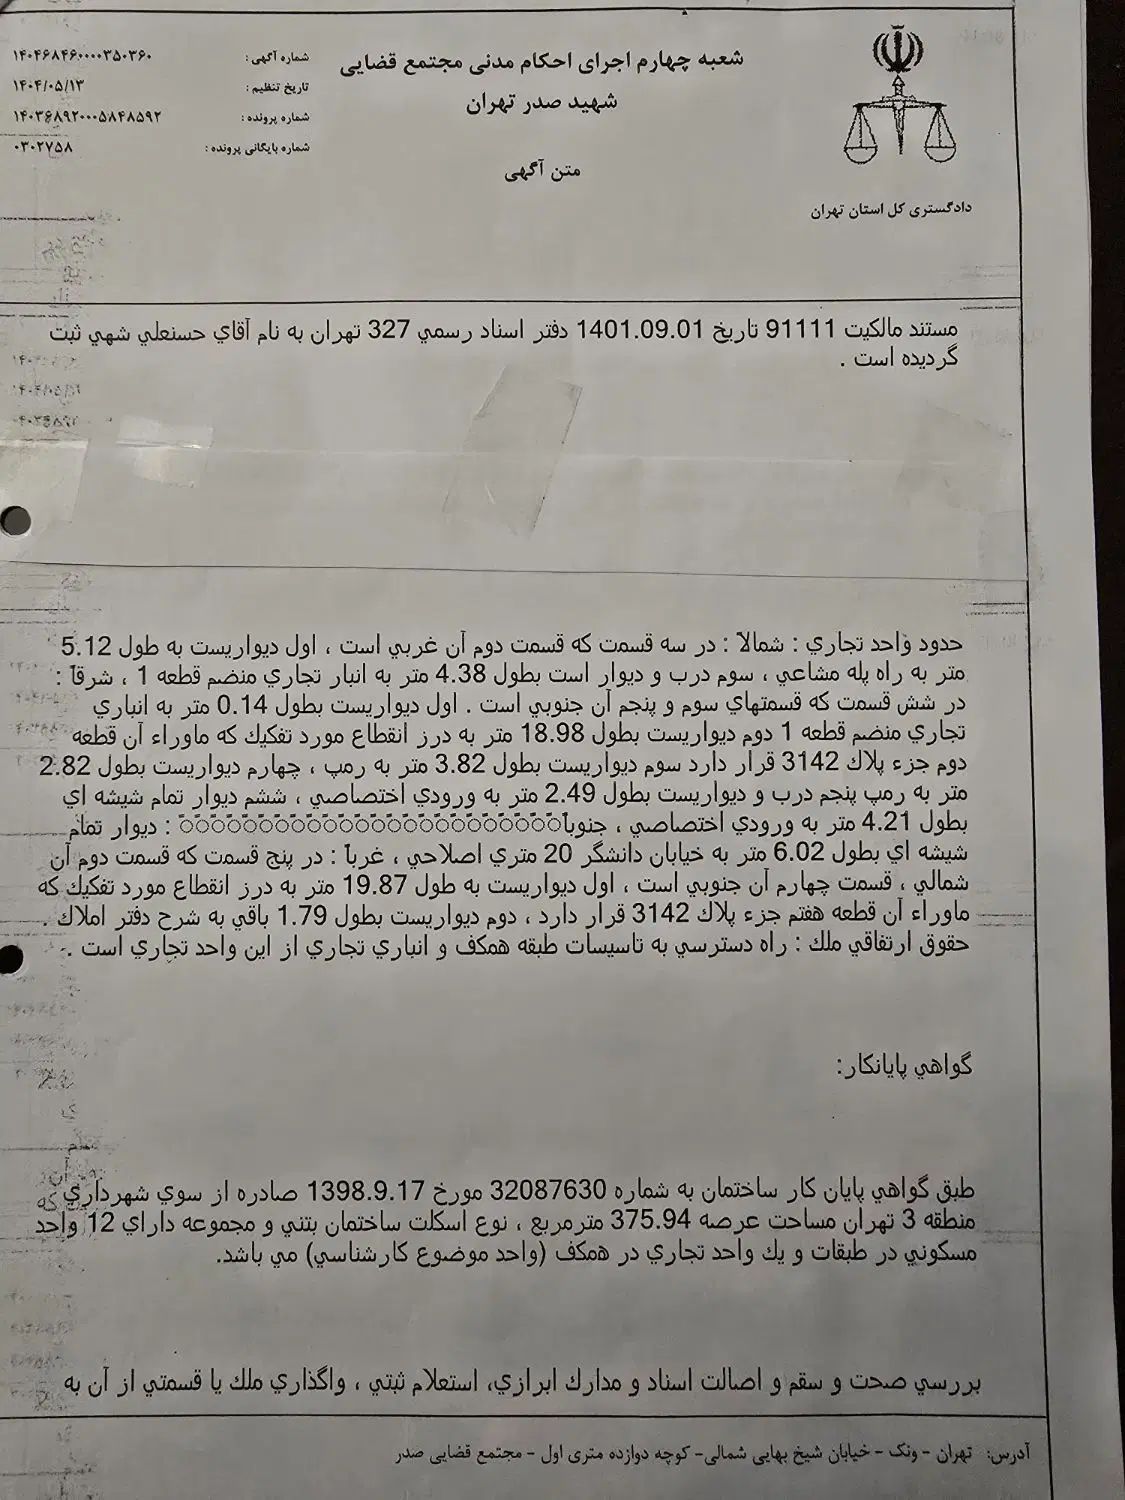 شعبه چهارم اجرای احکام مدنی مجتمع قضایی
شهید صدر تهران
متن آگهی
دادگستری کل استان تهران
شماره آگهی : ۱۴۰۴۶۸۴۶۰۰۰۰۳۵۰۳۶۰
تاریخ تنظیم : ۱۴۰۴/۰۵/۱۳
شماره پرونده : ۱۴۰۳۶۸۹۲۰۰۰۵۸۴۸۵۹۲
شماره بایگانی پرونده : ۰۳۰۲۷۵۸
مستند مالكيت 91111 تاريخ 1401.09.01 دفتر اسناد رسمي 327 تهران به نام آقاي حسنعلي شهي ثبت
گرديده است .
حدود واحد تجاري : شمالاً : در سه قسمت كه قسمت دوم آن غربي است ، اول ديواريست به طول 5.12
متر به راه پله مشاعي ، سوم درب و ديوار است بطول 4.38 متر به انبار تجاري منضم قطعه 1 ، شرقاً :
در شش قسمت كه قسمتهاي سوم و پنجم آن جنوبي است . اول ديواريست بطول 0.14 متر به انباري
تجاري منضم قطعه 1 دوم ديواريست بطول 18.98 متر به درز انقطاع مورد تفكيك كه ماوراء آن قطعه
دوم جزء پلاك 3142 قرار دارد سوم ديواريست بطول 3.82 متر به رمپ ، چهارم ديواريست بطول 2.82
متر به رمپ پنجم درب و ديواريست بطول 2.49 متر به ورودي اختصاصي ، ششم ديوار تمام شيشه اي
بطول 4.21 متر به ورودي اختصاصي ، جنوباً : ديوار تمام
شيشه اي بطول 6.02 متر به خيابان دانشگر 20 متري اصلاحي ، غرباً : در پنج قسمت كه قسمت دوم آن
شمالي ، قسمت چهارم آن جنوبي است ، اول ديواريست به طول 19.87 متر به درز انقطاع مورد تفكيك كه
ماوراء آن قطعه هفتم جزء پلاك 3142 قرار دارد ، دوم ديواريست بطول 1.79 باقي به شرح دفتر املاك .
حقوق ارتفاقي ملك : راه دسترسي به تاسيسات طبقه همكف و انباري تجاري از اين واحد تجاري است .
گواهي پايانكار:
طبق گواهي پايان كار ساختمان به شماره 32087630 مورخ 1398.9.17 صادره از سوي شهرداري
منطقه 3 تهران مساحت عرصه 375.94 مترمربع ، نوع اسكلت ساختمان بتني و مجموعه داراي 12 واحد
مسكوني در طبقات و يك واحد تجاري در همكف (واحد موضوع كارشناسي) مي باشد.
بررسي صحت و سقم و اصالت اسناد و مدارك ابرازي، استعلام ثبتي ، واگذاري ملك يا قسمتي از آن به
آدرس: تهران - ونک - خیابان شیخ بهایی شمالی- کوچه دوازده متری اول - مجتمع قضایی صدر